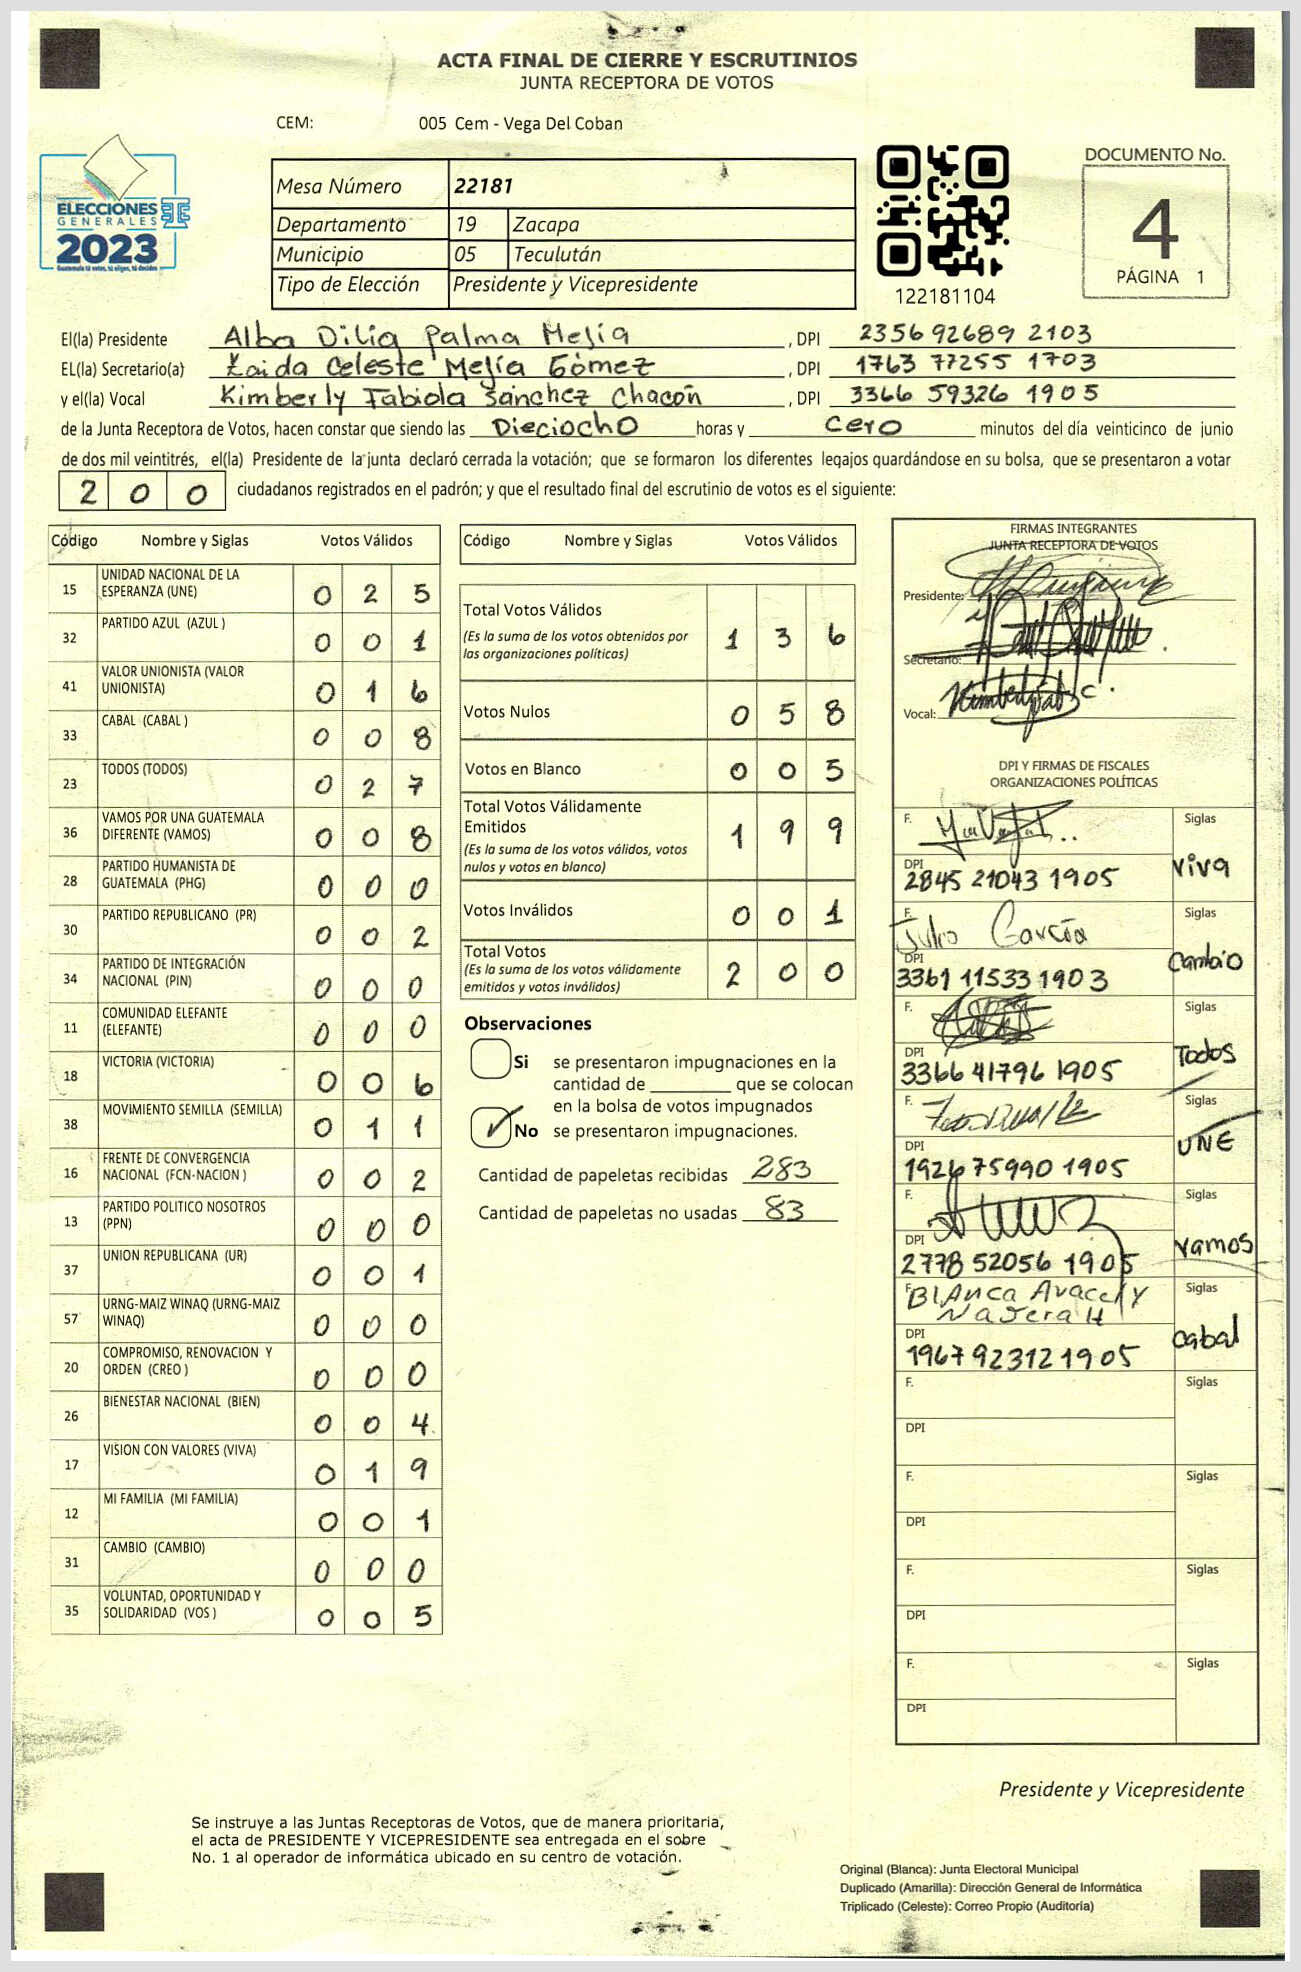 ACTA FINAL DE CIERRE Y ESCRUTINIOS
JUNTA RECEPTORA DE VOTOS
CEM: 005 Cem - Vega Del Coban
ELECCIONES
GENERALES
2023
Guatemala tú votas, tú eliges, tú decides
Mesa Número 22181
Departamento 19 Zacapa
Municipio 05 Teculután
Tipo de Elección Presidente y Vicepresidente
122181104
DOCUMENTO No.
4
PÁGINA 1
El(la) Presidente Alba Dilia Palma Mejía, DPI 2356 92689 2103
EL(la) Secretario(a) Zaida Celeste Mejía Gómez, DPI 1763 77255 1703
y el(la) Vocal Kimberly Fabiola Sánchez Chacón, DPI 3366 59326 1905
de la Junta Receptora de Votos, hacen constar que siendo las Dieciocho horas y cero minutos del día veinticinco de junio
de dos mil veintitrés, el(la) Presidente de la junta declaró cerrada la votación; que se formaron los diferentes legajos guardándose en su bolsa, que se presentaron a votar
2 0 0 ciudadanos registrados en el padrón; y que el resultado final del escrutinio de votos es el siguiente:
Código Nombre y Siglas Votos Válidos
15 UNIDAD NACIONAL DE LA
ESPERANZA (UNE) 0 2 5
32 PARTIDO AZUL (AZUL ) 0 0 1
41 VALOR UNIONISTA (VALOR
UNIONISTA) 0 1 6
33 CABAL (CABAL ) 0 0 8
23 TODOS (TODOS) 0 2 7
36 VAMOS POR UNA GUATEMALA
DIFERENTE (VAMOS) 0 0 8
28 PARTIDO HUMANISTA DE
GUATEMALA (PHG) 0 0 0
30 PARTIDO REPUBLICANO (PR) 0 0 2
34 PARTIDO DE INTEGRACIÓN
NACIONAL (PIN) 0 0 0
11 COMUNIDAD ELEFANTE
(ELEFANTE) 0 0 0
18 VICTORIA (VICTORIA) 0 0 6
38 MOVIMIENTO SEMILLA (SEMILLA) 0 1 1
16 FRENTE DE CONVERGENCIA
NACIONAL (FCN-NACION ) 0 0 2
13 PARTIDO POLITICO NOSOTROS
(PPN) 0 0 0
37 UNION REPUBLICANA (UR) 0 0 1
57 URNG-MAIZ WINAQ (URNG-MAIZ
WINAQ) 0 0 0
20 COMPROMISO, RENOVACION Y
ORDEN (CREO ) 0 0 0
26 BIENESTAR NACIONAL (BIEN) 0 0 4
17 VISION CON VALORES (VIVA) 0 1 9
12 MI FAMILIA (MI FAMILIA) 0 0 1
31 CAMBIO (CAMBIO) 0 0 0
35 VOLUNTAD, OPORTUNIDAD Y
SOLIDARIDAD (VOS ) 0 0 5
Código Nombre y Siglas Votos Válidos
Total Votos Válidos 1 3 6
(Es la suma de los votos obtenidos por
las organizaciones políticas)
Votos Nulos 0 5 8
Votos en Blanco 0 0 5
Total Votos Válidamente
Emitidos 1 9 9
(Es la suma de los votos válidos, votos
nulos y votos en blanco)
Votos Inválidos 0 0 1
Total Votos 2 0 0
(Es la suma de los votos válidamente
emitidos y votos inválidos)
Observaciones
Si se presentaron impugnaciones en la
cantidad de ________ que se colocan
en la bolsa de votos impugnados
No se presentaron impugnaciones.
Cantidad de papeletas recibidas 283
Cantidad de papeletas no usadas 83
FIRMAS INTEGRANTES
JUNTA RECEPTORA DE VOTOS
Presidente:
Secretario:
Vocal:
DPI Y FIRMAS DE FISCALES
ORGANIZACIONES POLÍTICAS
F. Siglas
DPI 2845 21043 1905 Viva
F. Julio García Siglas
DPI 3361 11533 1903 Cambio
F. Siglas
DPI 3366 41796 1905 Todos
F. Siglas
DPI 1926 75990 1905 UNE
F. Siglas
DPI 2778 52056 1905 vamos
F. Blanca Aracely Siglas
Najera H
DPI 1967 92312 1905 cabal
F. Siglas
DPI
F. Siglas
DPI
F. Siglas
DPI
F. Siglas
DPI
Presidente y Vicepresidente
Se instruye a las Juntas Receptoras de Votos, que de manera prioritaria,
el acta de PRESIDENTE Y VICEPRESIDENTE sea entregada en el sobre
No. 1 al operador de informática ubicado en su centro de votación.
Original (Blanca): Junta Electoral Municipal
Duplicado (Amarilla): Dirección General de Informática
Triplicado (Celeste): Correo Propio (Auditoría)